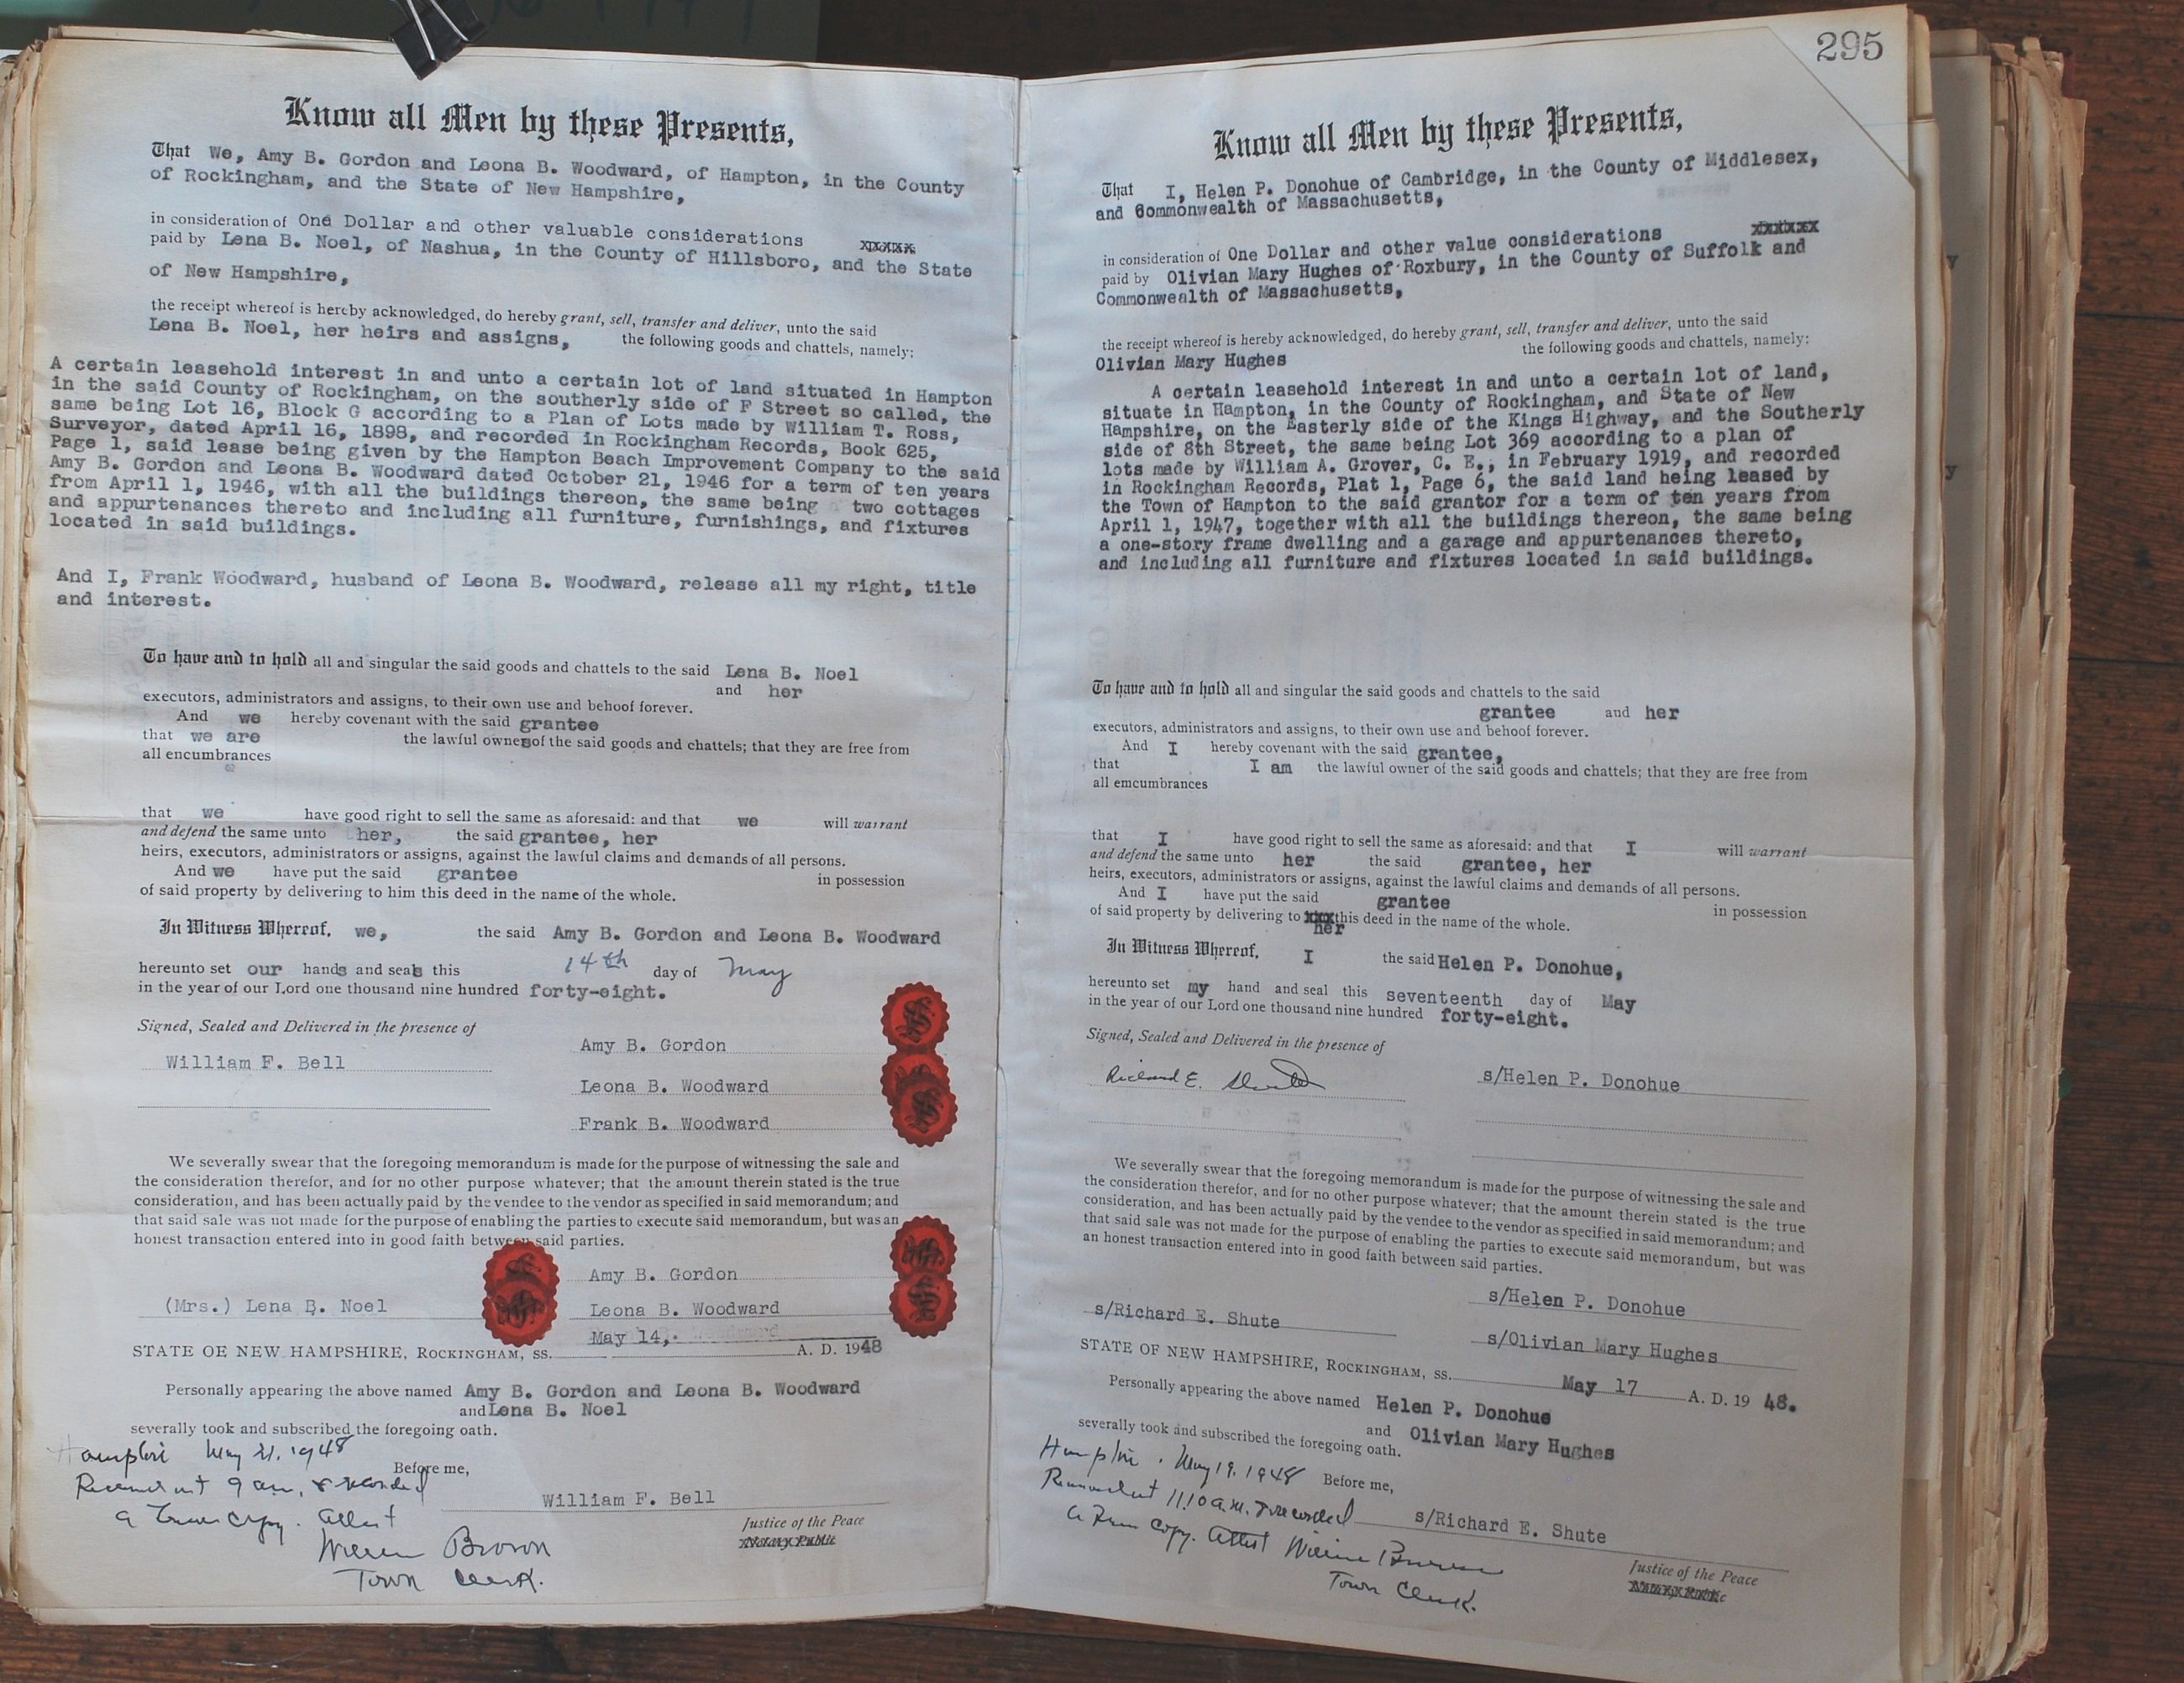 Know all Men by these Presents,
That We, Amy B. Gordon and Leona B. Woodward, of Hampton, in the County
of Rockingham, and the State of New Hampshire,
in consideration of One Dollar and other valuable considerations xxxxxx
paid by Lena B. Noel, of Nashua, in the County of Hillsboro, and the State
of New Hampshire,
the receipt whereof is hereby acknowledged, do hereby grant, sell, transfer and deliver, unto the said
Lena B. Noel, her heirs and assigns, the following goods and chattels, namely:
A certain leasehold interest in and unto a certain lot of land situated in Hampton
in the said County of Rockingham, on the southerly side of F Street so called, the
same being Lot 16, Block G according to a Plan of Lots made by William T. Ross,
Surveyor, dated April 16, 1898, and recorded in Rockingham Records, Book 625,
Page 1, said lease being given by the Hampton Beach Improvement Company to the said
Amy B. Gordon and Leona B. Woodward dated October 21, 1946 for a term of ten years
from April 1, 1946, with all the buildings thereon, the same being two cottages
and appurtenances thereto and including all furniture, furnishings, and fixtures
located in said buildings.
And I, Frank Woodward, husband of Leona B. Woodward, release all my right, title
and interest.
To have and to hold all and singular the said goods and chattels to the said Lena B. Noel
and her
executors, administrators and assigns, to their own use and behoof forever.
And we hereby covenant with the said grantee
that we are the lawful owners of the said goods and chattels; that they are free from
all encumbrances
that we have good right to sell the same as aforesaid: and that we will warrant
and defend the same unto her, the said grantee, her
heirs, executors, administrators or assigns, against the lawful claims and demands of all persons.
And we have put the said grantee in possession
of said property by delivering to him this deed in the name of the whole.
In Witness Whereof, we, the said Amy B. Gordon and Leona B. Woodward
hereunto set our hands and seals this 14th day of May
in the year of our Lord one thousand nine hundred forty-eight.
Signed, Sealed and Delivered in the presence of
Amy B. Gordon
William F. Bell
Leona B. Woodward
Frank B. Woodward
We severally swear that the foregoing memorandum is made for the purpose of witnessing the sale and
the consideration therefor, and for no other purpose whatever; that the amount therein stated is the true
consideration, and has been actually paid by the vendee to the vendor as specified in said memorandum; and
that said sale was not made for the purpose of enabling the parties to execute said memorandum, but was an
honest transaction entered into in good faith between said parties.
Amy B. Gordon
(Mrs.) Lena B. Noel Leona B. Woodward
May 14,
STATE OF NEW HAMPSHIRE, ROCKINGHAM, SS. A. D. 1948
Personally appearing the above named Amy B. Gordon and Leona B. Woodward
and Lena B. Noel
severally took and subscribed the foregoing oath.
Hampton May 21, 1948
Before me,
Received at 9 a.m. & recorded
William F. Bell
a true copy. Attest
Justice of the Peace
Notary Public
Brown
Town Clerk.
295
Know all Men by these Presents,
That I, Helen P. Donohue of Cambridge, in the County of Middlesex,
and Commonwealth of Massachusetts,
in consideration of One Dollar and other value considerations xxxxxx
paid by Olivian Mary Hughes of Roxbury, in the County of Suffolk and
Commonwealth of Massachusetts,
the receipt whereof is hereby acknowledged, do hereby grant, sell, transfer and deliver, unto the said
Olivian Mary Hughes the following goods and chattels, namely:
A certain leasehold interest in and unto a certain lot of land,
situate in Hampton, in the County of Rockingham, and State of New
Hampshire, on the Easterly side of the Kings Highway, and the Southerly
side of 8th Street, the same being Lot 369 according to a plan of
lots made by William A. Grover, C. E., in February 1919, and recorded
in Rockingham Records, Plat 1, Page 6, the said land being leased by
the Town of Hampton to the said grantor for a term of ten years from
April 1, 1947, together with all the buildings thereon, the same being
a one-story frame dwelling and a garage and appurtenances thereto,
and including all furniture and fixtures located in said buildings.
To have and to hold all and singular the said goods and chattels to the said
grantee and her
executors, administrators and assigns, to their own use and behoof forever.
And I hereby covenant with the said grantee,
that I am the lawful owner of the said goods and chattels; that they are free from
all emcumbrances
that I have good right to sell the same as aforesaid: and that I will warrant
and defend the same unto her the said grantee, her
heirs, executors, administrators or assigns, against the lawful claims and demands of all persons.
And I have put the said grantee in possession
of said property by delivering to xxx this deed in the name of the whole.
her
In Witness Whereof, I the said Helen P. Donohue,
hereunto set my hand and seal this seventeenth day of May
in the year of our Lord one thousand nine hundred forty-eight.
Signed, Sealed and Delivered in the presence of
Richard E. Shute s/Helen P. Donohue
We severally swear that the foregoing memorandum is made for the purpose of witnessing the sale and
the consideration therefor, and for no other purpose whatever; that the amount therein stated is the true
consideration, and has been actually paid by the vendee to the vendor as specified in said memorandum; and
that said sale was not made for the purpose of enabling the parties to execute said memorandum, but was
an honest transaction entered into in good faith between said parties.
s/Helen P. Donohue
s/Richard E. Shute
s/Olivian Mary Hughes
STATE OF NEW HAMPSHIRE, ROCKINGHAM, SS. May 17 A. D. 1948.
Personally appearing the above named Helen P. Donohue
and Olivian Mary Hughes
severally took and subscribed the foregoing oath.
Hampton, May 19, 1948 Before me,
Received at 11.10 a.m. & recorded
s/Richard E. Shute
a true copy. Attest
Justice of the Peace
Town Clerk.